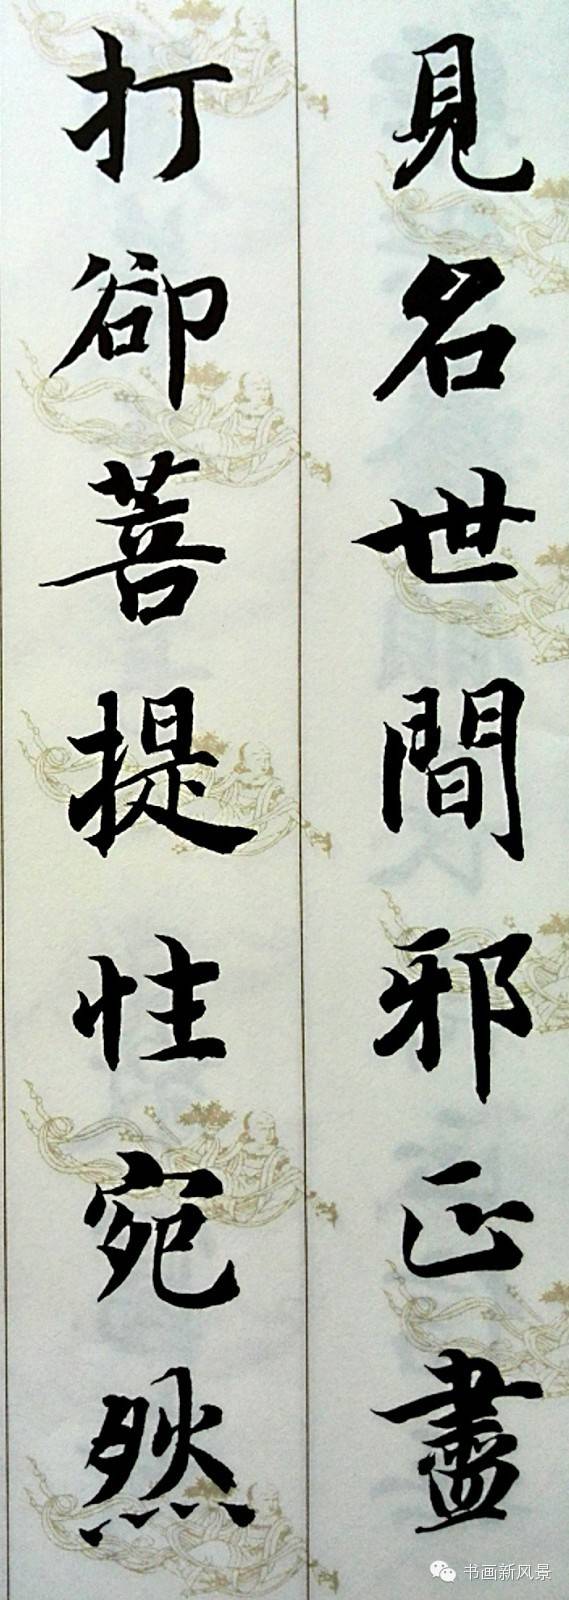 見名世間邪正盡
打卻菩提性宛然
书画新风景